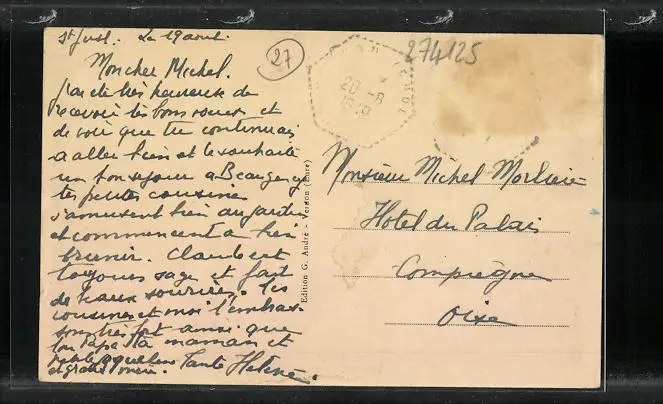 St Just. Le 19 août.
Mon cher Michel.
J'ai été très heureuse de
recevoir tes bons et
de voir que tu continuais
a aller bien et te souhaite
un bon sejour a
tes petites cousines
s'amusent bien au jardin
et commencent a bien
brunir. Claubert
toujours sage et fait
de beaux sourires. Les
cousines et moi t'embras-
sons très fort ainsi que
ton Papa ta maman et
et grand mère. Tante Helene.
27
274125
20 -8
Edition G. André - Verson (Eure)
Monsieur Michel Morlière
Hotel du Palais
Compiègne
Oise